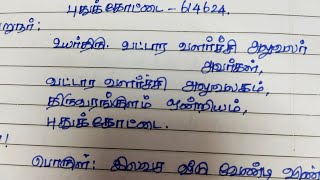 புதுக்கோட்டை - 614624.
றுநர்:
உயர்திரு. வட்டார வளர்ச்சி அலுவலர்
அவர்கள்,
வட்டார வளர்ச்சி அலுவலகம்,
திருவரங்குளம் ஒன்றியம்,
புதுக்கோட்டை.
பொருள்: இலவச வீடு வேண்டி விண்